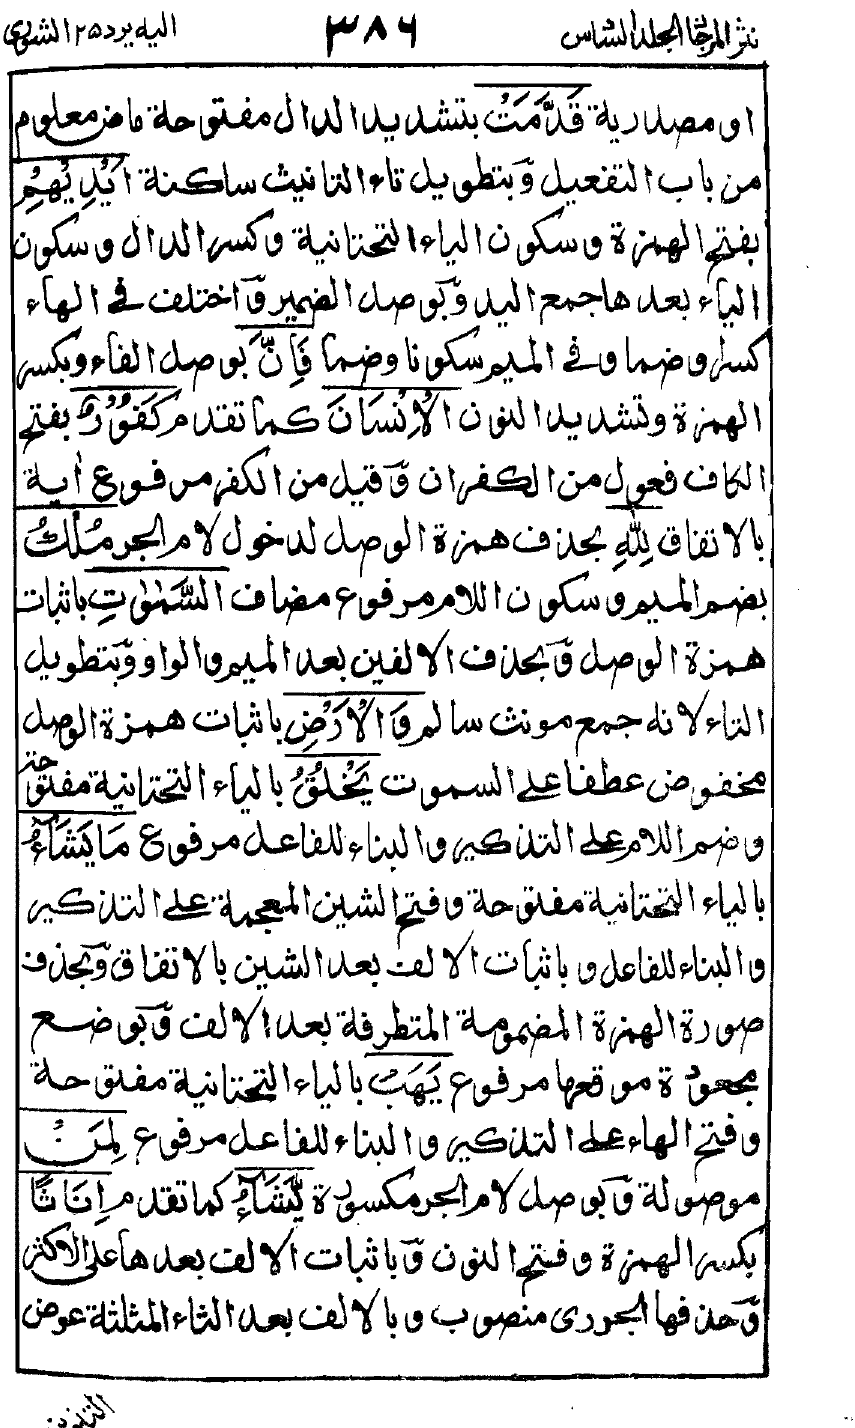 نثر المرجان الجلد السادس ٣٨٦ اليه يرد ٢٥ الشورى
او مصدرية قَدَّمَتْ بتشديد الدال مفتوحة ماض معلوم
من باب التفعيل وَبتطويل تاء التانيث ساكنة اَيْدِيْهِمْ
بفتح الهمزة وسكون الياء التحتانية وكسر الدال وسكون
الياء بعدها جمع اليد وَبوصل الضمير وَاختلف فى الهاء
كسرا وضما وفى الميم سكونا وضما فَاِنَّ بوصل الفاء وبكسر
الهمزة وتشديد النون الْاِنْسَانَ كما تقدم كَفُوْرٌ بفتح
الكاف فعول من الكفران وَقيل من الكفر مرفوع اٰية
بالاتفاق لِلّٰهِ بحذف همزة الوصل لدخول لام الجر مُلْكُ
بضم الميم وسكون اللام مرفوع مضاف السَّمٰوٰتِ باثبات
همزة الوصل وَبحذف الالفين بعد الميم والواو وَبتطويل
التاء لانه جمع مونث سالم وَالْاَرْضِ باثبات همزة الوصل
مخفوض عطفا على السموت يَخْلُقُ بالياء التحتانية مفتوحة
وضم اللام على التذكير والبناء للفاعل مرفوع مَا يَشَآءُ
بالياء التحتانية مفتوحة وفتح الشين المعجمة على التذكير
والبناء للفاعل وباثبات الالف بعد الشين بالاتفاق وَبحذف
صورة الهمزة المضمومة المتطرفة بعد الالف وَبوضع
مجعودة موقعها مرفوع يَهَبُ بالياء التحتانية مفتوحة
وفتح الهاء على التذكير والبناء للفاعل مرفوع لِمَنْ
موصولة وَبوصل لام الجر مكسورة يَّشَآءُ كما تقدم اِنَاثًا
بكسر الهمزة وفتح النون وَباثبات الالف بعدها على الاكثر
وَحذفها الجزرى منصوب وبالالف بعد الثاء المثلثة عوض
التنوين